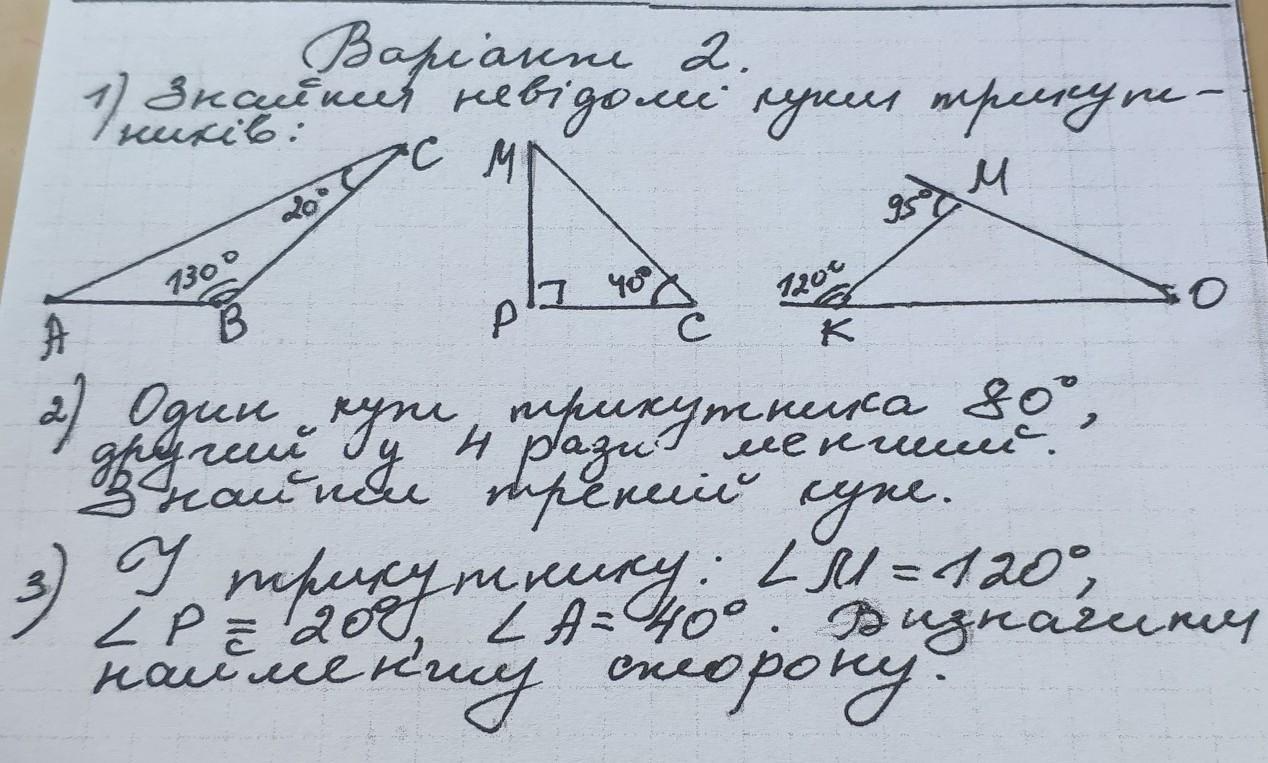 Варіант 2.
1) Знайти невідомі кути трикут-
ників:
C M M
20° 95°
130° 40° 120° O
A B P C K
2) Один кут трикутника 80°,
другий у 4 рази менший.
Знайти третій кут.
3) У трикутнику: ∠M = 120°,
∠P = 20°, ∠A = 40°. Визначити
найменшу сторону.